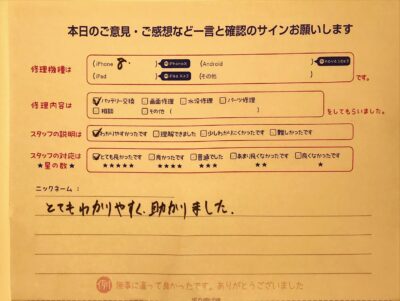 本日のご意見・ご感想など一言と確認のサインお願いします
修理機種は
(iPhone 8. ) (Android )
(iPad ) (その他 )
です。
修理内容は
☑バッテリー交換 □画面修理 □水没修理 □パーツ修理
□相談 □その他 ( )
をしてもらいました。
スタッフの説明は
☑わかりやすかったです □理解できました □少しわかりにくかったです □難しかったです
スタッフの対応は
★星の数★
☑とても良かったです □良かったです □普通でした □あまり良くなかったです □良くなかったです
★★★★★ ★★★★ ★★★ ★★ ★
ニックネーム:
とてもわかりやすく、助かりました。
無事に直って良かったです。ありがとうございました